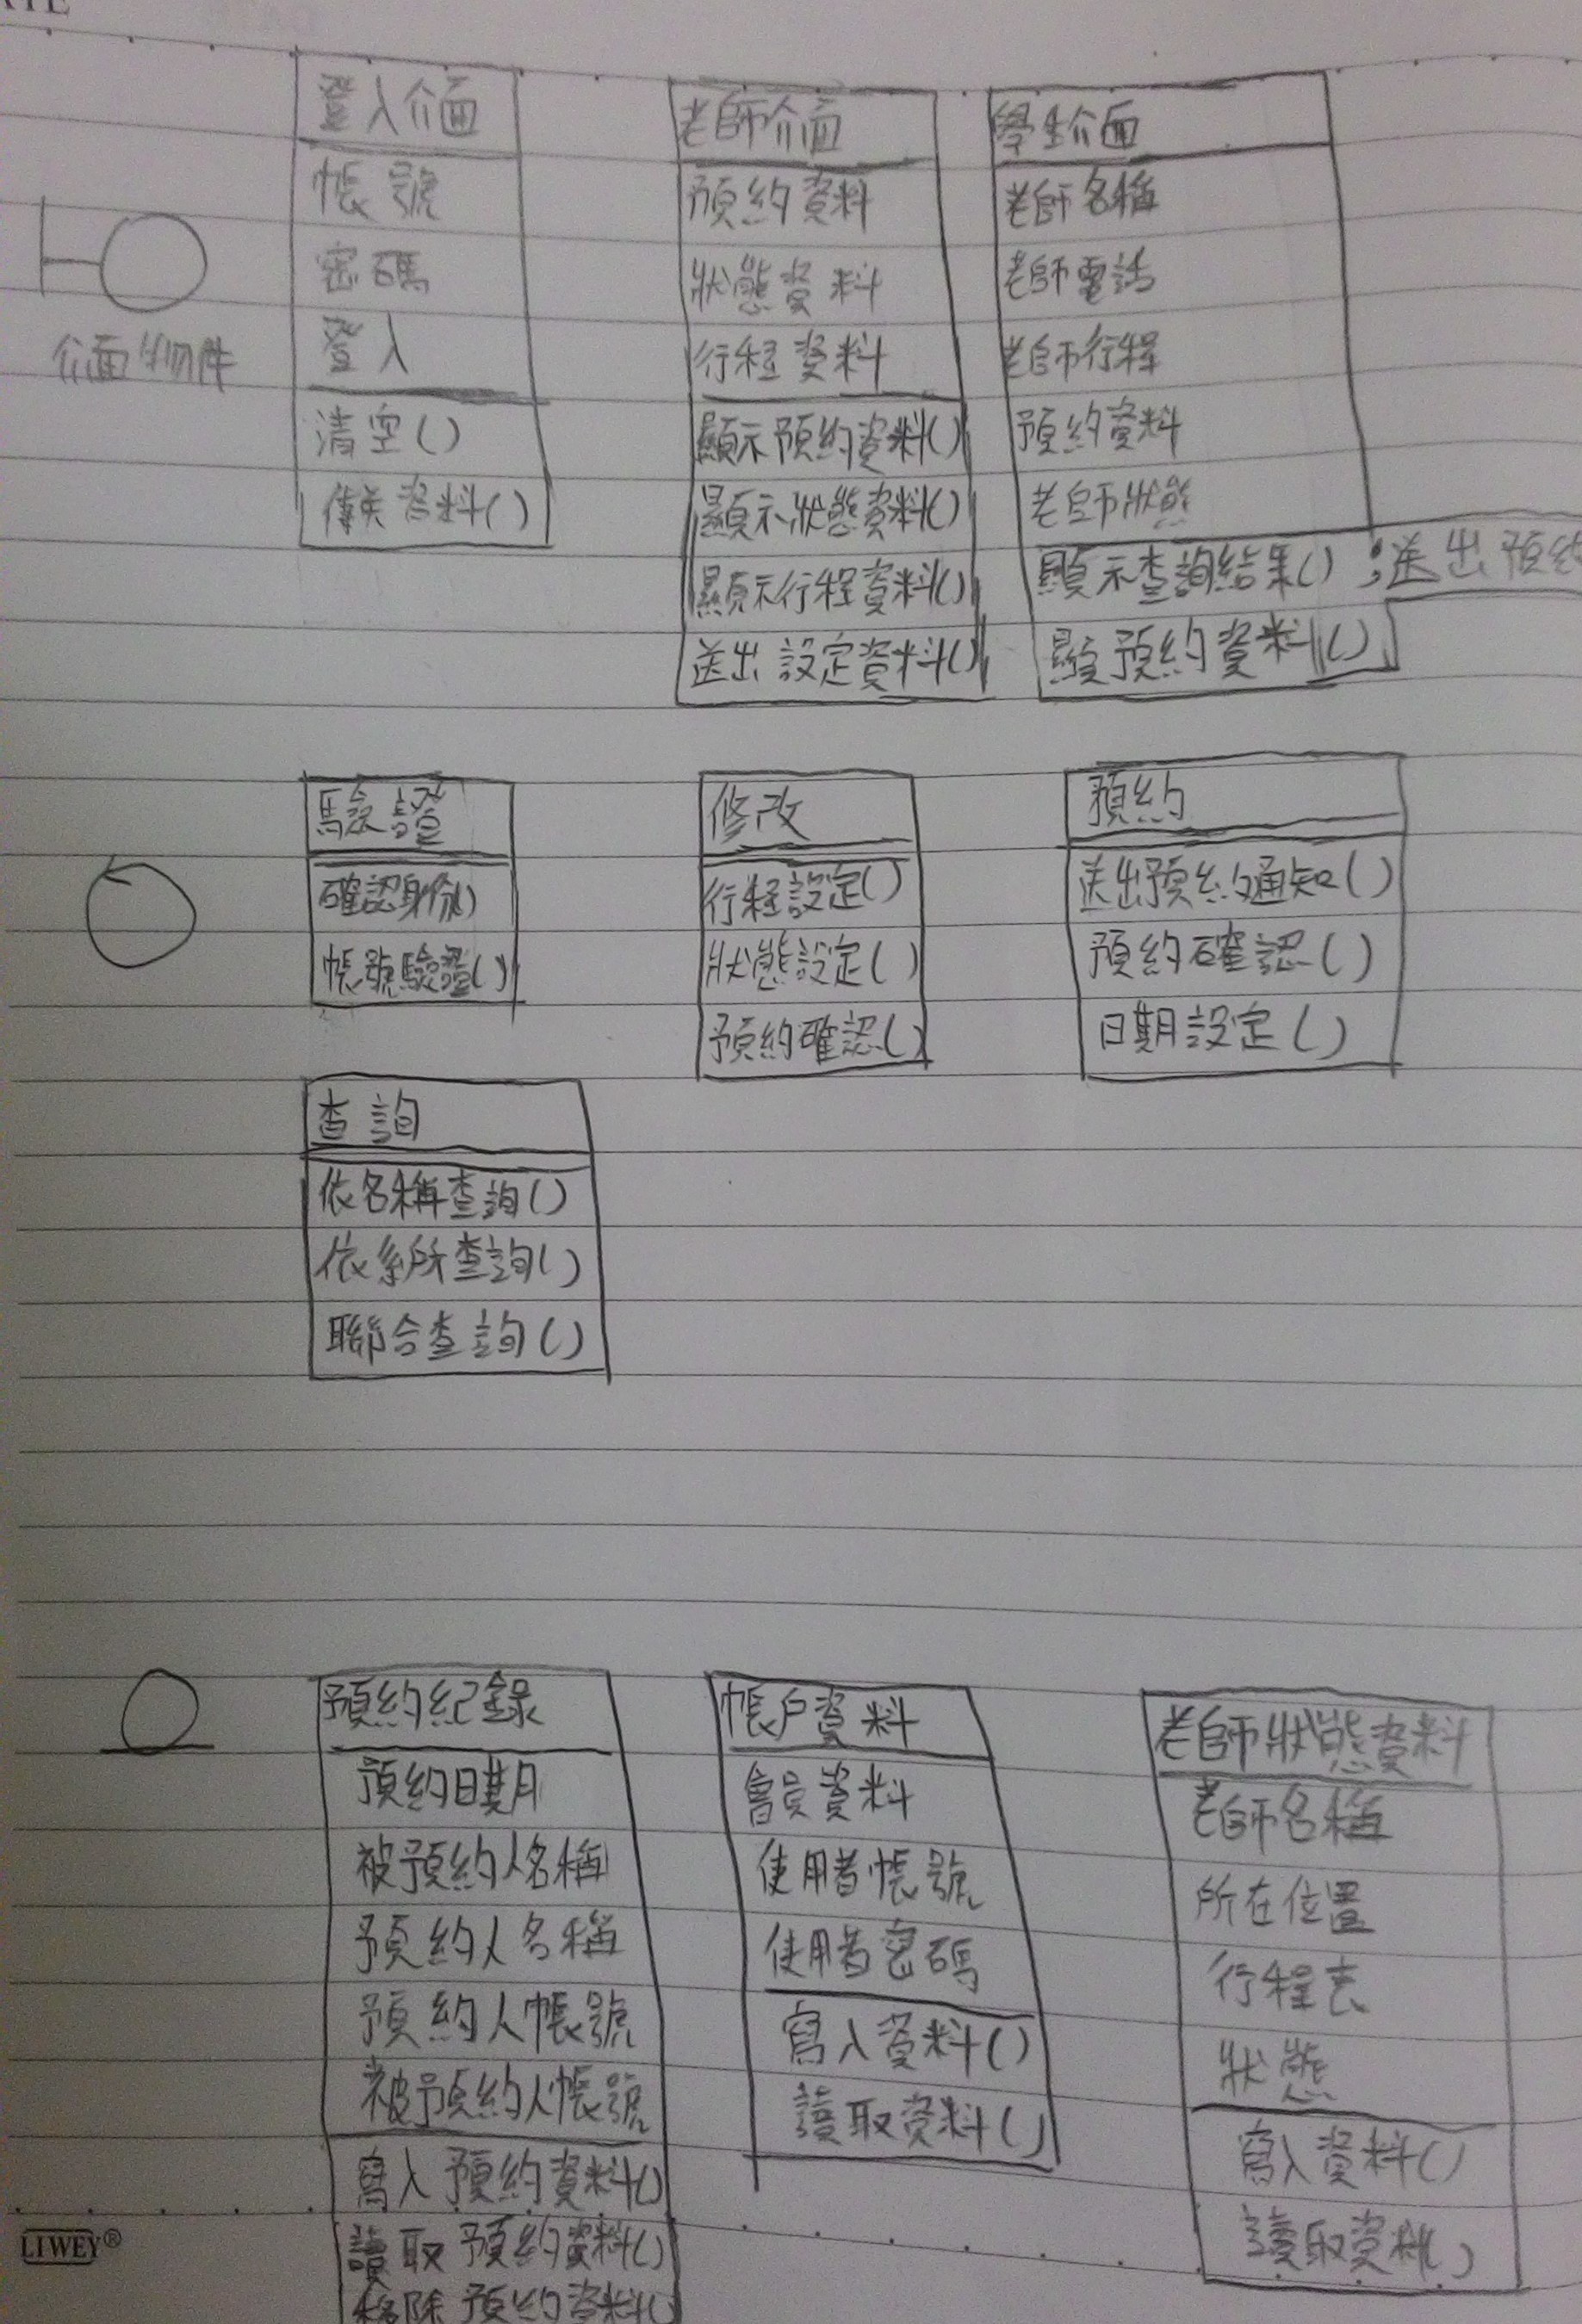 登入介面
帳號
密碼
登入
清空()
資料()
介面物件
老師介面
預約資料
狀態資料
行程資料
顯示預約資料()
顯示狀態資料()
顯示行程資料()
送出設定資料()
學生介面
老師名稱
老師電話
老師行程
預約資料
老師狀態
顯示查詢結果();送出預約
預約資料()
驗證
確認身份()
帳號驗證()
修改
行程設定()
狀態設定()
預約確認()
預約
送出預約通知()
預約確認()
日期設定()
查詢
依名稱查詢()
依系所查詢()
聯合查詢()
預約紀錄
預約日期
被預約人名稱
預約人名稱
預約人帳號
被預約人帳號
寫入預約資料()
讀取預約資料()
移除預約資料()
帳戶資料
會員資料
使用者帳號
使用者密碼
寫入資料()
讀取資料()
老師狀態資料
老師名稱
所在位置
行程表
狀態
寫入資料()
讀取資料()
LIWEY®